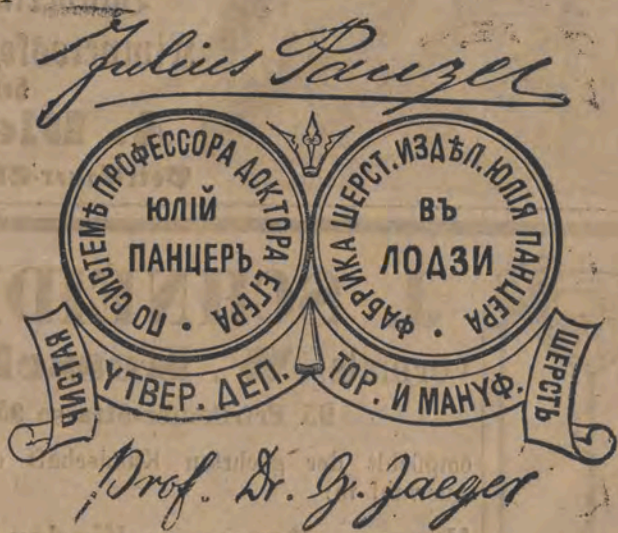 Julius Panzer
ПО СИСТЕМѢ ПРОФЕССОРА ДОКТОРА ЕГЕРА •
ЮЛІЙ
ПАНЦЕРЪ
ФАБРИКА ШЕРСТ. ИЗДѢЛ. ЮЛІЯ ПАНЦЕРА •
ВЪ
ЛОДЗИ
ЧИСТАЯ
УТВЕР. ДЕП. ТОР. И МАНУФ.
ШЕРСТЬ
Prof. Dr. G. Jaeger